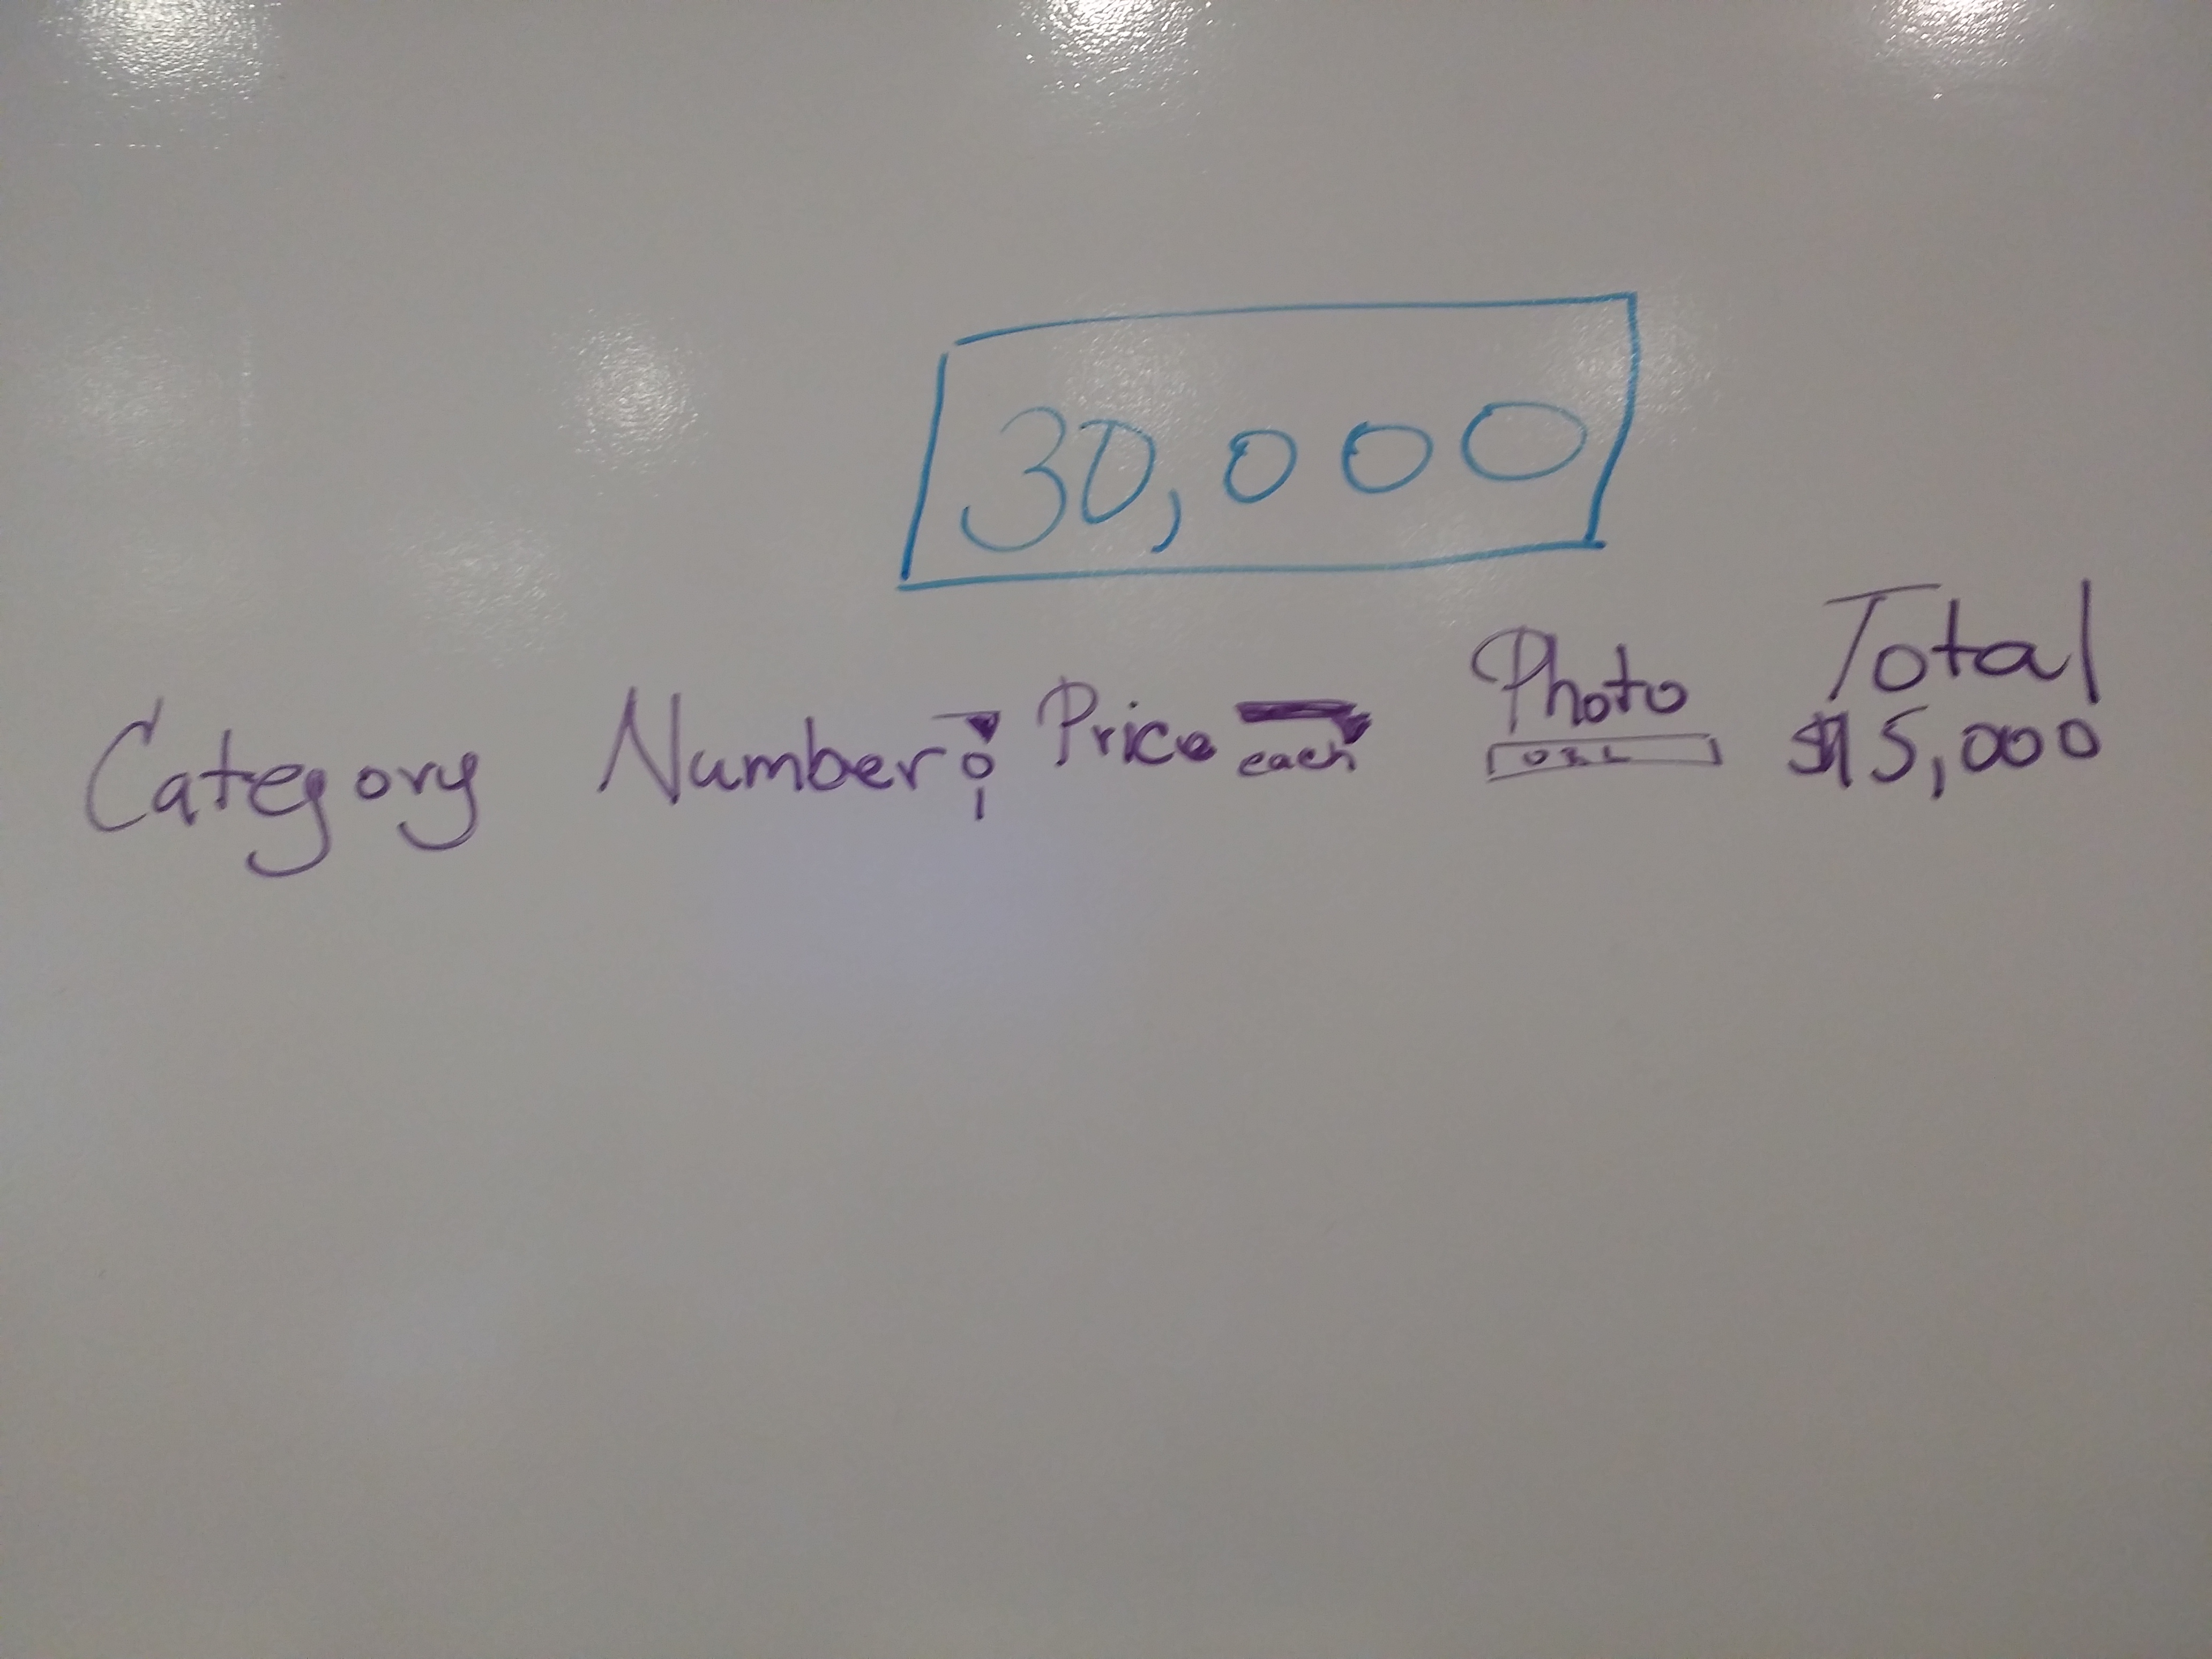 30,000
Category Number Price each Photo Total
$15,000